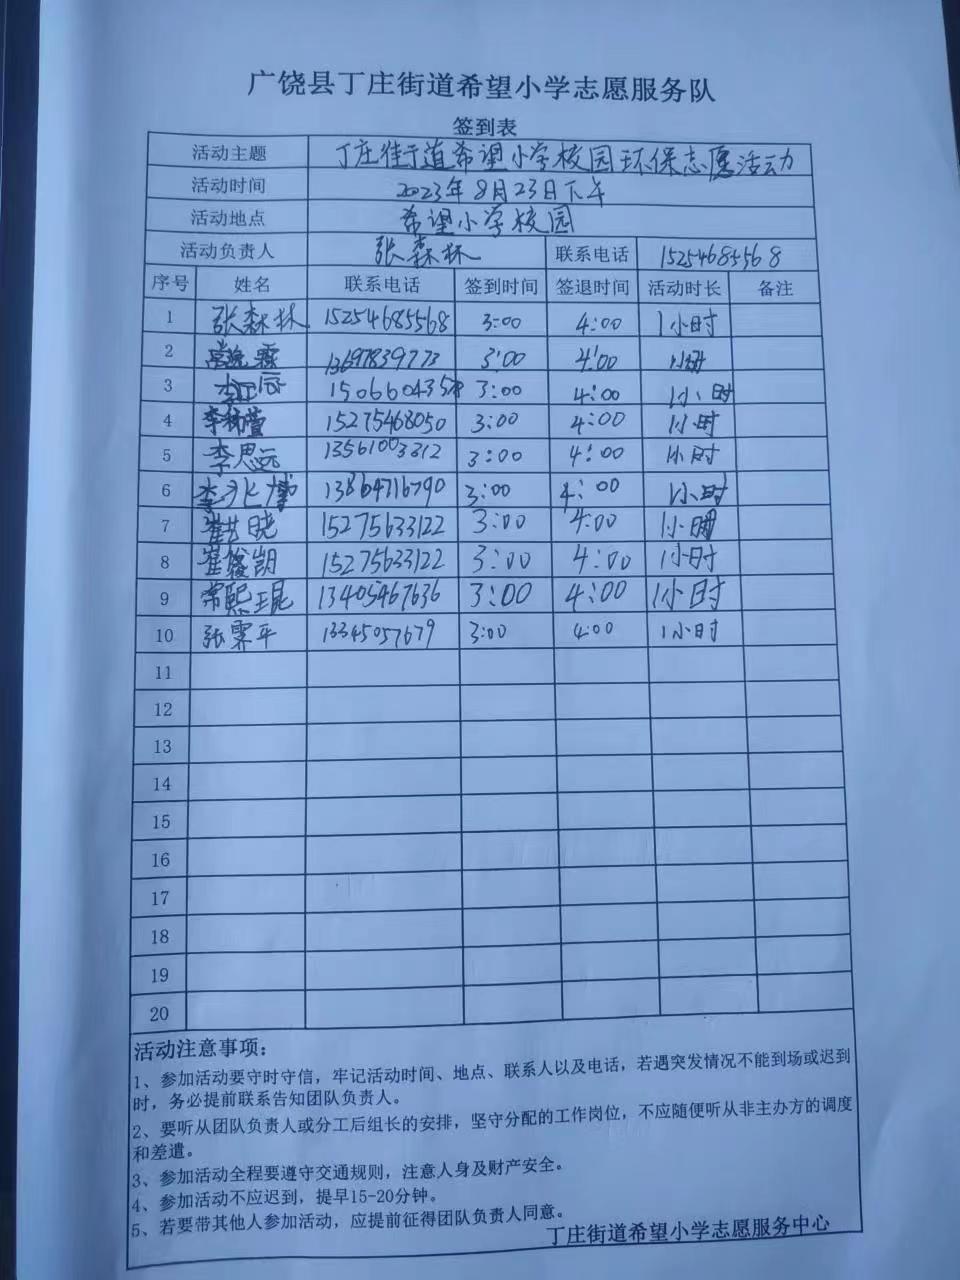 广饶县丁庄街道希望小学志愿服务队
签到表
活动主题 丁庄街道希望小学校园环保志愿活动
活动时间 2023年8月23日下午
活动地点 希望小学校园
活动负责人 张森林 联系电话 15254685568
序号 姓名 联系电话 签到时间 签退时间 活动时长 备注
1 张森林 15254685568 3:00 4:00 1小时
2 13697839773 3:00 4:00 1小时
3 3:00 4:00 1小时
4 15275468050 3:00 4:00 1小时
5 李思远 13561003312 3:00 4:00 1小时
6 李兆博 13864716790 3:00 4:00 1小时
7 15275633122 3:00 4:00 1小时
8 崔俊凯 15275633122 3:00 4:00 1小时
9 常熙琨 13405467636 3:00 4:00 1小时
10 张霖平 13345057679 3:00 4:00 1小时
11
12
13
14
15
16
17
18
19
20
活动注意事项：
1、参加活动要守时守信，牢记活动时间、地点、联系人以及电话，若遇突发情况不能到场或迟到
时，务必提前联系告知团队负责人。
2、要听从团队负责人或分工后组长的安排，坚守分配的工作岗位，不应随便听从非主办方的调度
和差遣。
3、参加活动全程要遵守交通规则，注意人身及财产安全。
4、参加活动不应迟到，提早15-20分钟。
5、若要带其他人参加活动，应提前征得团队负责人同意。
丁庄街道希望小学志愿服务中心